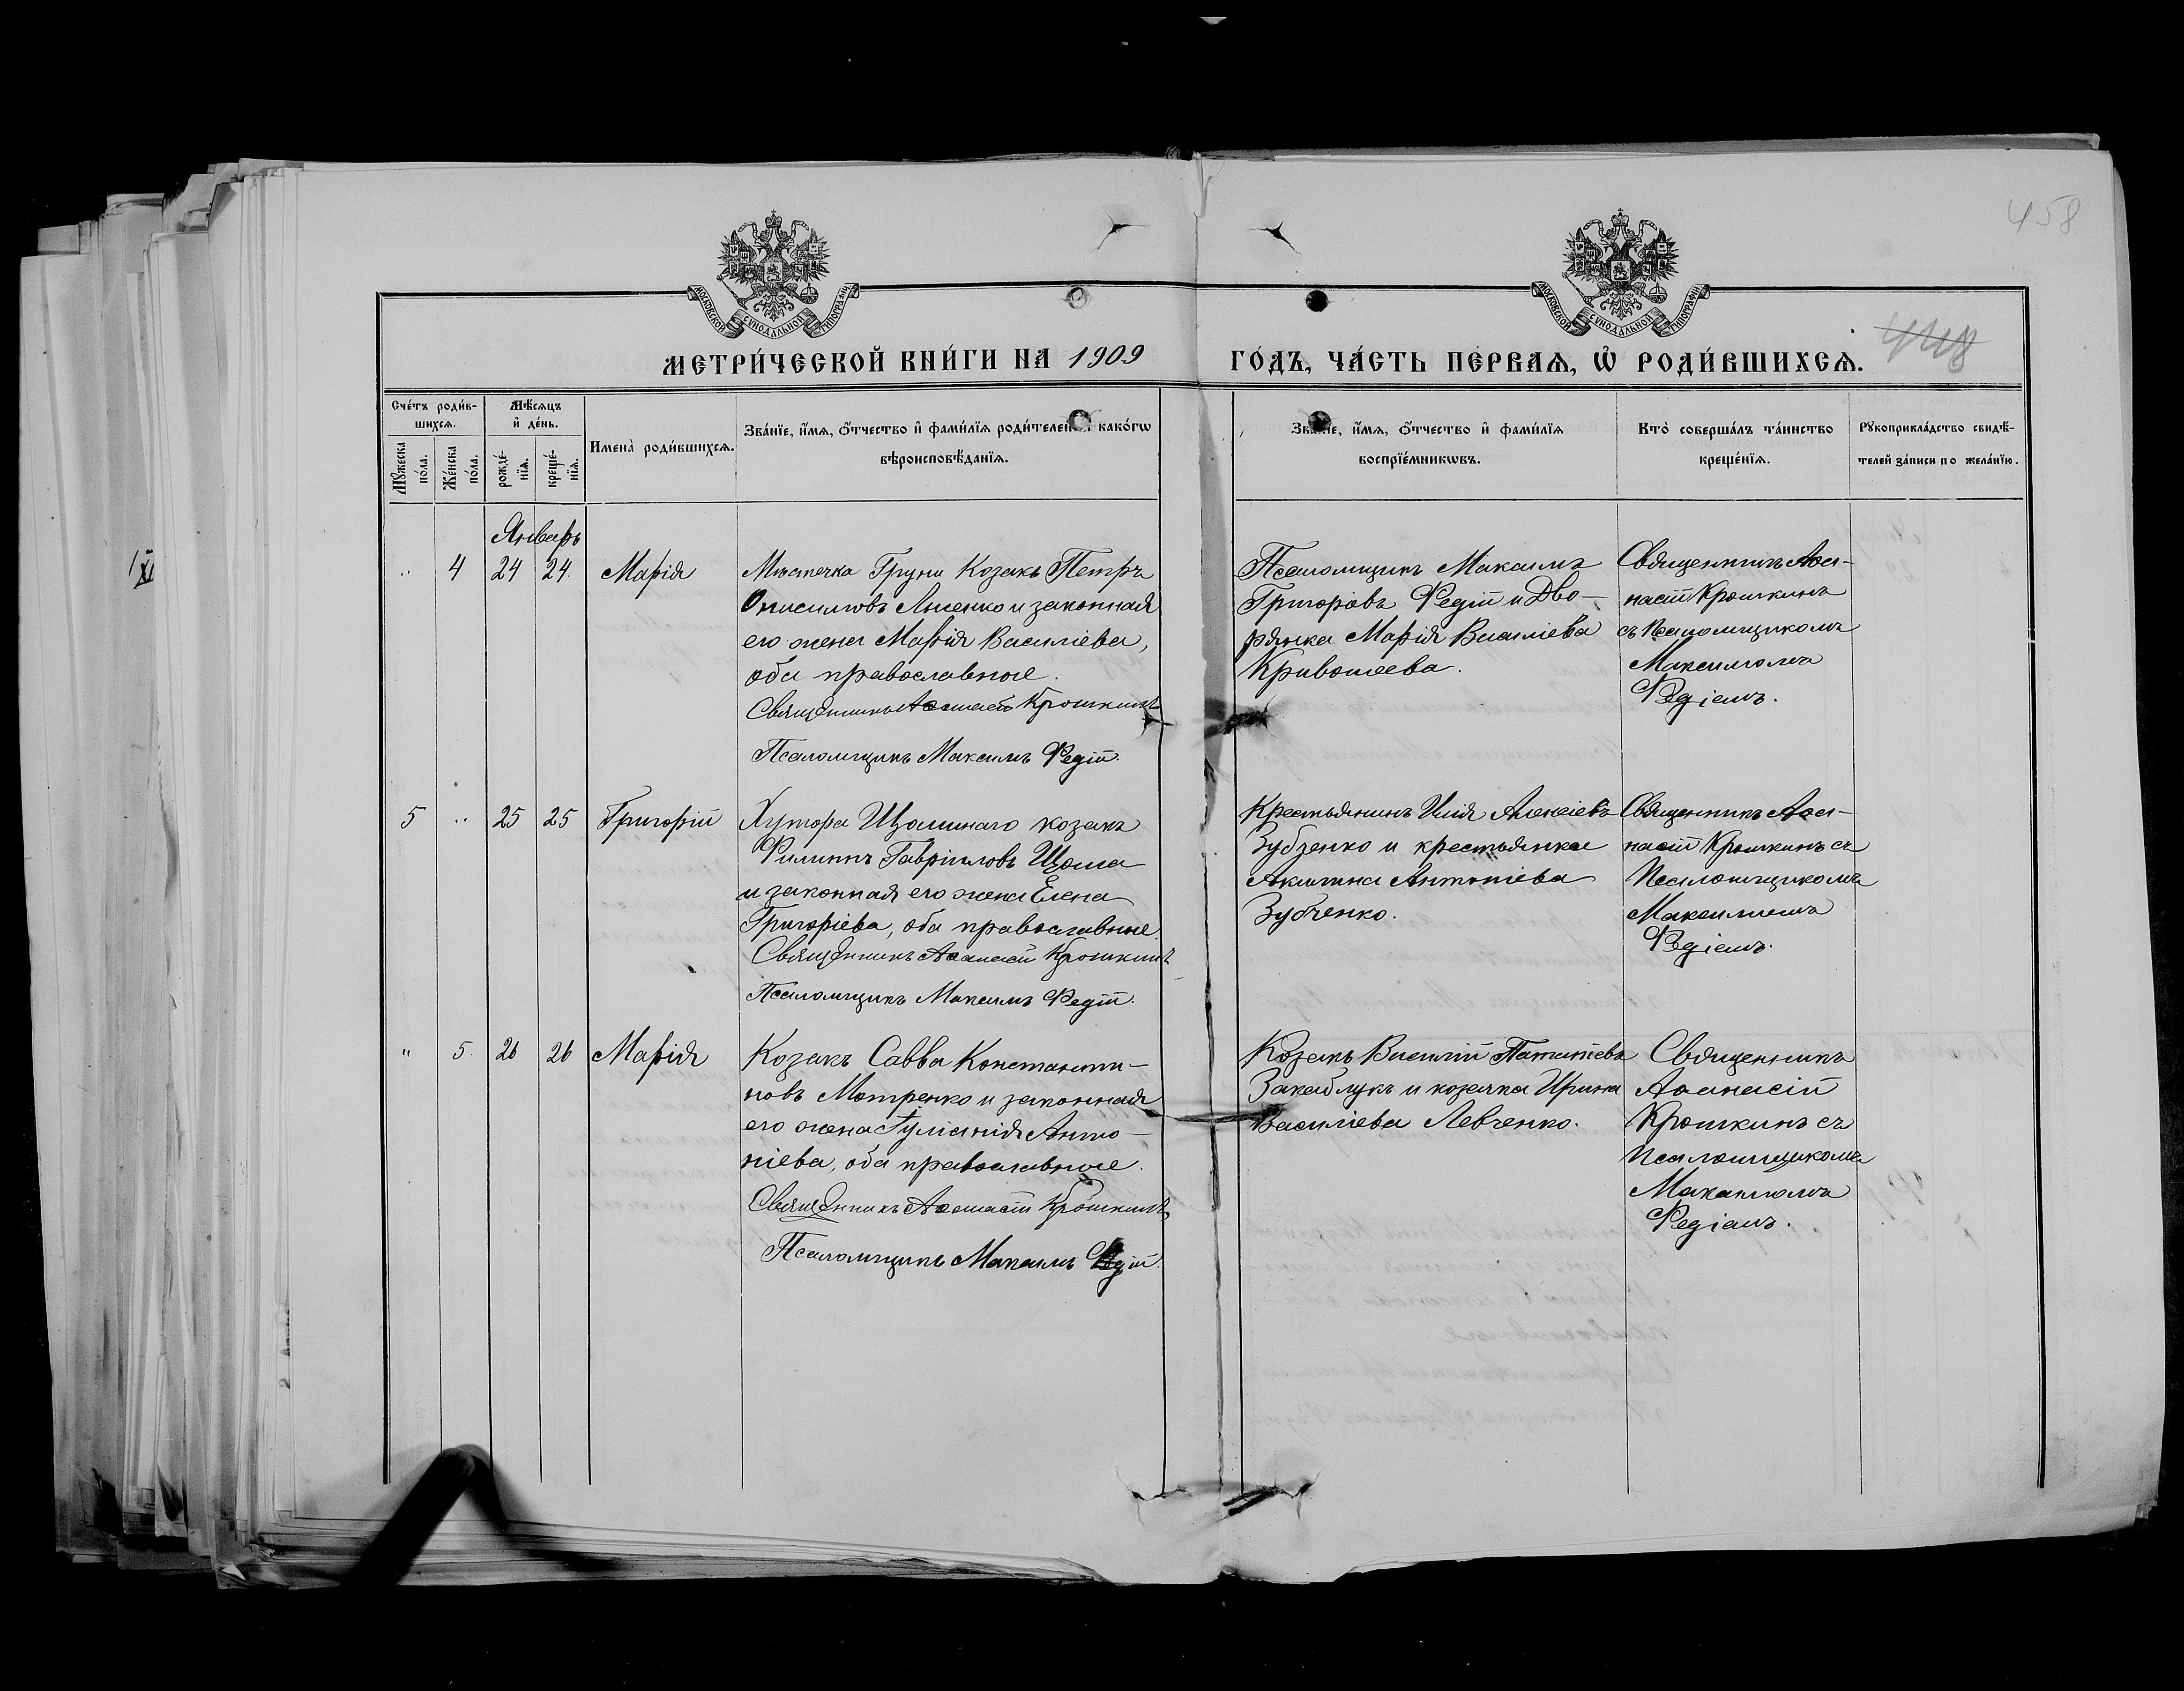 458
МОСКОВСКОЙ СѴНОДАЛЬНОЙ ТИПОГРАФІИ
МОСКОВСКОЙ СѴНОДАЛЬНОЙ ТИПОГРАФІИ
448
МЕТРИ́ЧЕСКОЙ КНИ́ГИ НА 1909
ГО́ДЪ, ЧА́СТЬ ПЕ́РВАѦ, Ѡ҆ РОДИ́ВШИХСѦ.
Сче́тъ роди́в-
шихсѧ.
Мѣ́сѧцъ
и҆ де́нь.
Мꙋ́жеска
по́ла.
Же́нска
по́ла.
рожде́-
нїѧ.
креще́-
нїѧ.
Имена̀ роди́вшихсѧ.
Зва́нїе, и҆́мѧ, ѻ҆́тчество и҆ фами́лїѧ роди́телей и҆ како́гѡ
вѣроисповѣ́данїѧ.
Зва́нїе, и҆́мѧ, ѻ҆́тчество и҆ фами́лїѧ
воспрїе́мникѡвъ.
Кто̀ соверша́лъ та́инство
креще́нїѧ.
Рꙋкоприкла́дство свидѣ́-
телей за́писи по жела́нїю.
Январь
„ 4 24 24. Марія
Мѣстечка Груни Козакъ Петръ
Онисимовъ Лысенко и законная
его жена Марія Василіева,
оба православные.
Священникъ Аѳанасій Крошкинъ
Псаломщикъ Максимъ Редій.
Псаломщикъ Максимъ
Григоріевъ Редій и Дво-
рянка Марія Василіева
Кривошеева.
Священникъ Аѳа-
насій Крошкинъ
съ Псаломщикомъ
Максимомъ
Редіемъ.
5 „ 25 25 Григорій
Хутора Щоминаго козакъ
Филиппъ Гавріиловъ Щома
и законная его жена Елена
Григоріева, оба православные.
Священникъ Аѳанасій Крошкинъ
Псаломщикъ Максимъ Редій.
Крестьянинъ Илія Алексіевъ
Зубченко и крестьянка
Акилина Антоніева
Зубченко.
Священникъ Аѳа-
насій Крошкинъ съ
Псаломщикомъ
Максимомъ
Редіемъ.
„ 5. 26 26 Марія
Козакъ Савва Константи-
новъ Мотренко и законная
его жена Іуліанія Анто-
ніева, оба православные.
Священникъ Аѳанасій Крошкинъ
Псаломщикъ Максимъ Редій.
Козакъ Василій
Закаблукъ и козачка Ирина
Василіева Левченко.
Священникъ
Аѳанасій
Крошкинъ съ
Псаломщикомъ
Максимомъ
Редіемъ.